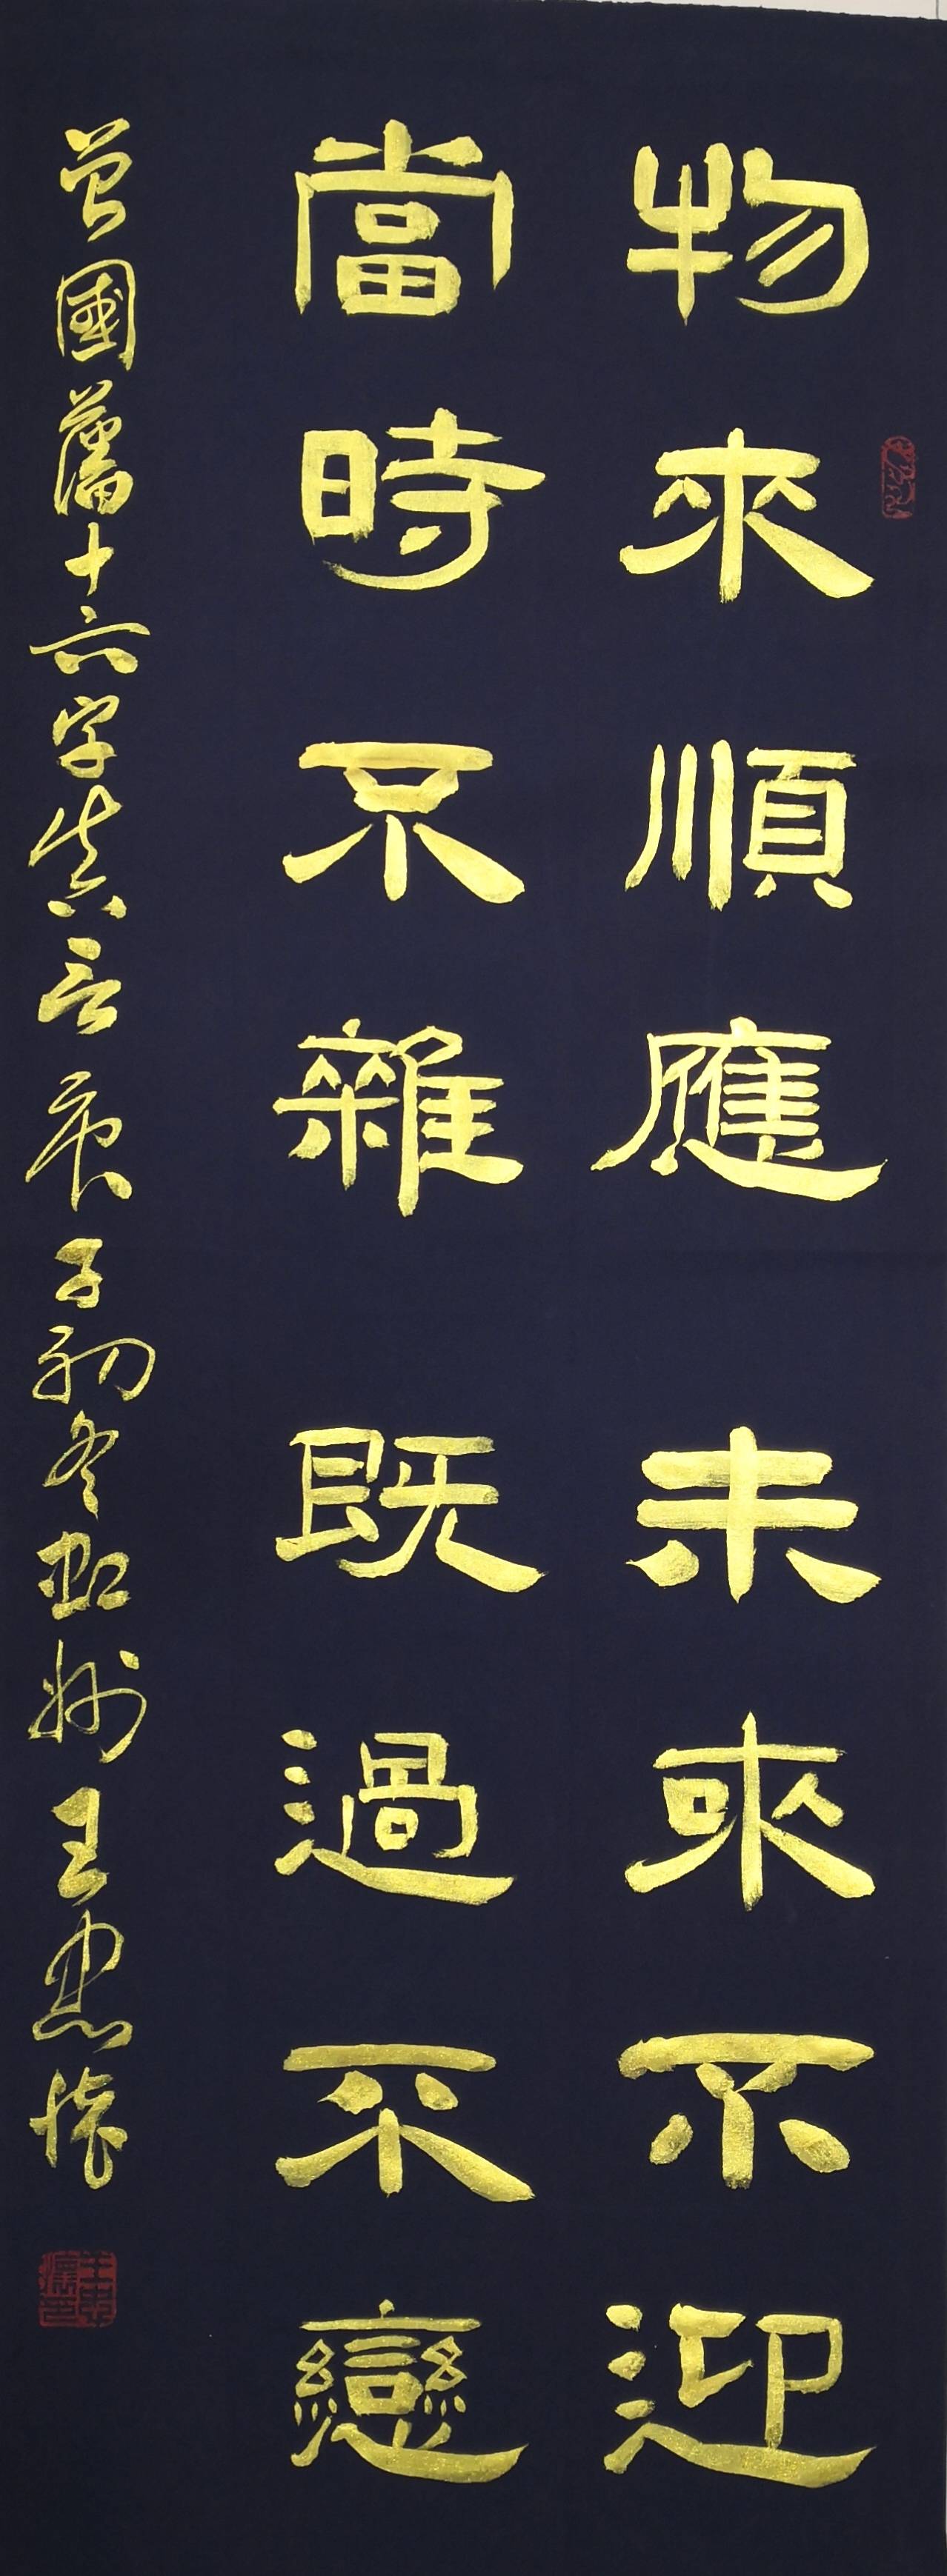 物來順應未來不迎
當時不雜既過不戀
曾國藩十六字真言庚子初冬虹州王忠懷